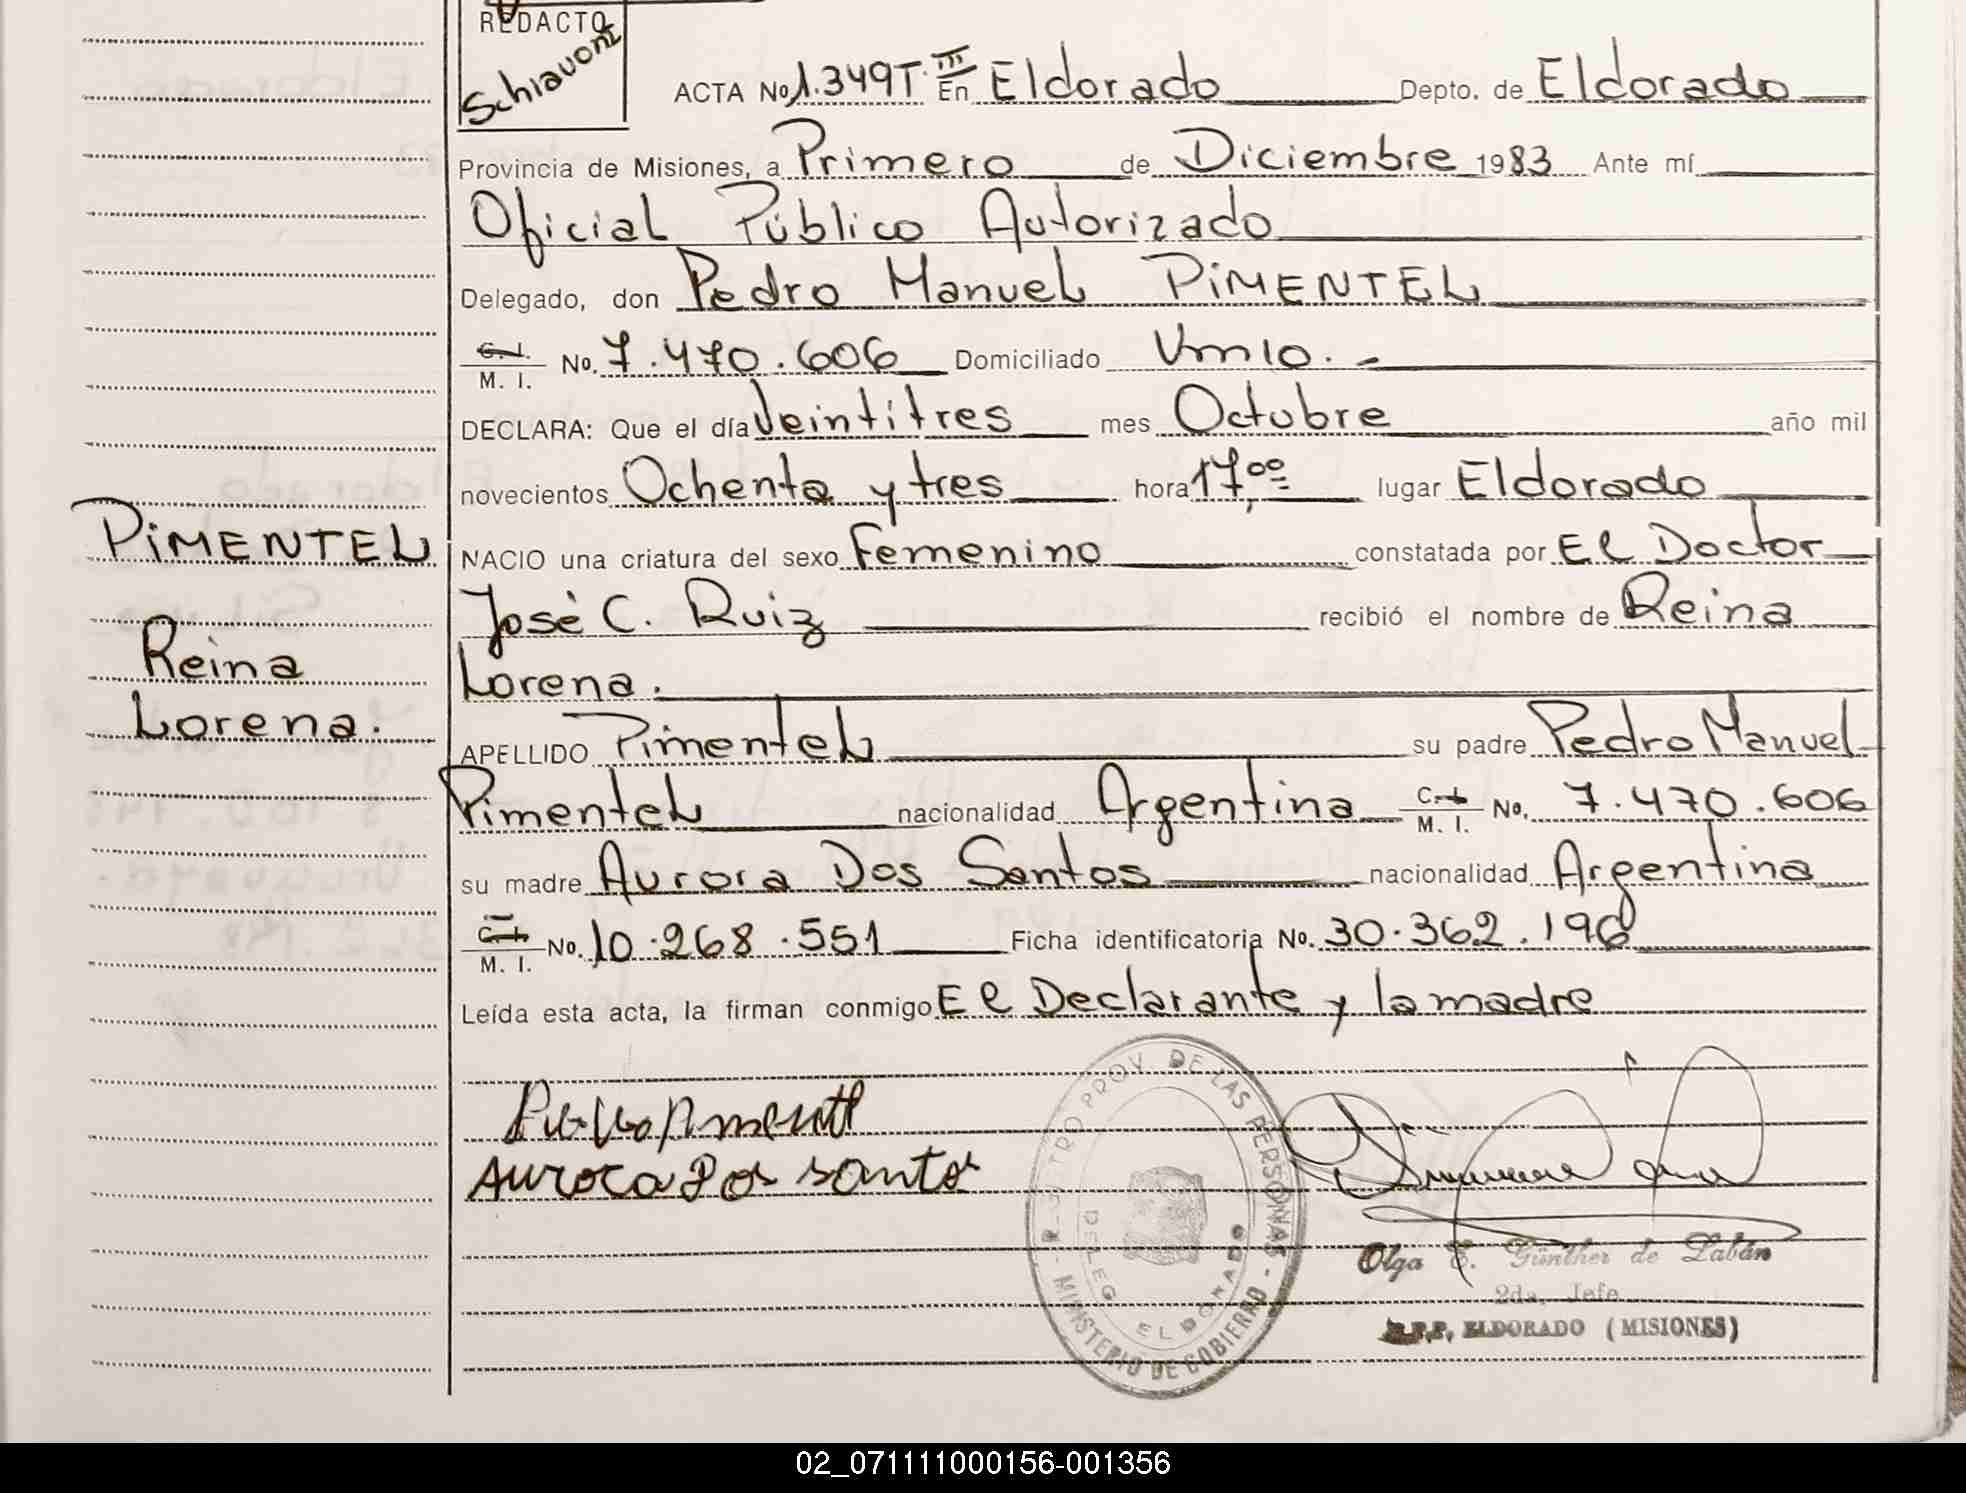 REDACTO
Schiavoni
ACTA No 1.349 T. III En Eldorado Depto. de Eldorado
Provincia de Misiones, a Primero de Diciembre 1983 Ante mí
Oficial Público Autorizado
Delegado, don Pedro Manuel PIMENTEL
C. I. M. I. No. 7.470.606 Domiciliado Vm10.-
DECLARA: Que el día Veintitres mes Octubre año mil
novecientos Ochenta y tres hora 17,00 lugar Eldorado
PIMENTEL
NACIO una criatura del sexo Femenino constatada por El Doctor
José C. Ruiz recibió el nombre de Reina
Reina
Lorena.
Lorena.
APELLIDO Pimentel su padre Pedro Manuel
Pimentel nacionalidad Argentina C. I. M. I. No. 7.470.606
su madre Aurora Dos Santos nacionalidad Argentina
C. I. M. I. No. 10.268.551 Ficha identificatoria No. 30.362.196
Leída esta acta, la firman conmigo El Declarante y la madre
Aurora Dos santos
REGISTRO PROV. DE LAS PERSONAS - MINISTERIO DE GOBIERNO -
DELEG. ELDORADO
Olga E. Günther de Labán
2da. Jefe
R.P.P. ELDORADO (MISIONES)
02_071111000156-001356